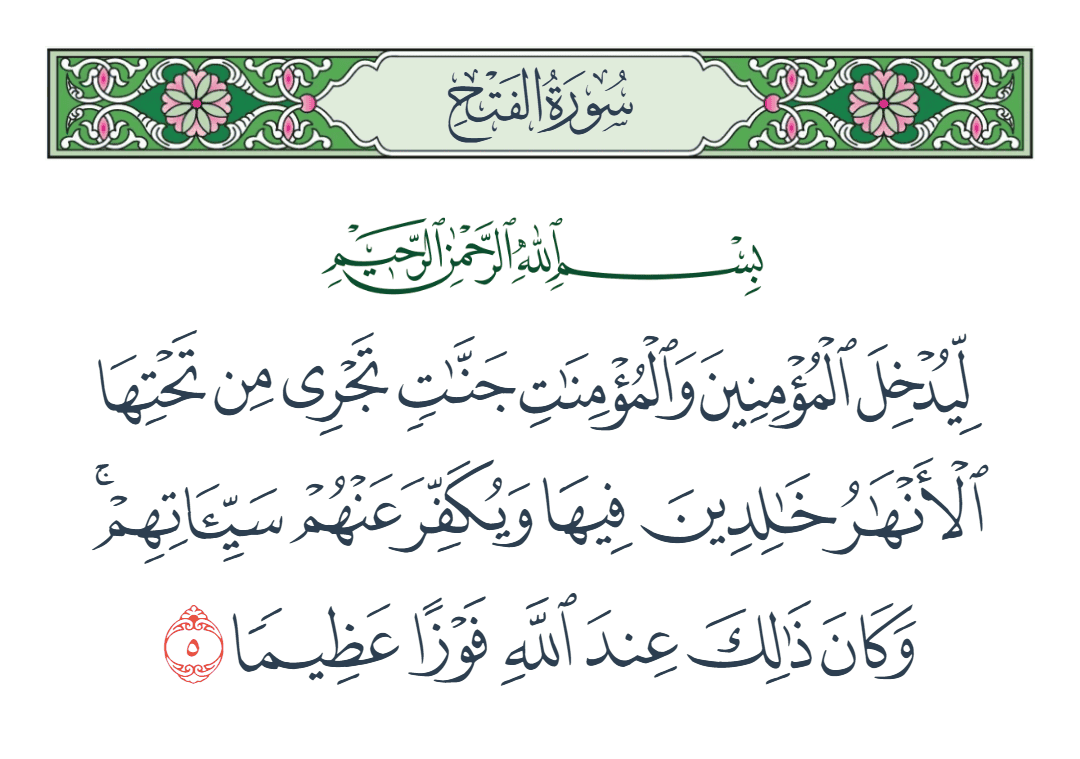 سُورَةُ الفَتۡحِ
بِسۡمِ ٱللَّهِ ٱلرَّحۡمَٰنِ ٱلرَّحِيمِ
لِّيُدۡخِلَ ٱلۡمُؤۡمِنِينَ وَٱلۡمُؤۡمِنَٰتِ جَنَّٰتٖ تَجۡرِي مِن تَحۡتِهَا
ٱلۡأَنۡهَٰرُ خَٰلِدِينَ فِيهَا وَيُكَفِّرَ عَنۡهُمۡ سَيِّـَٔاتِهِمۡۚ
وَكَانَ ذَٰلِكَ عِندَ ٱللَّهِ فَوۡزًا عَظِيمٗا ٥